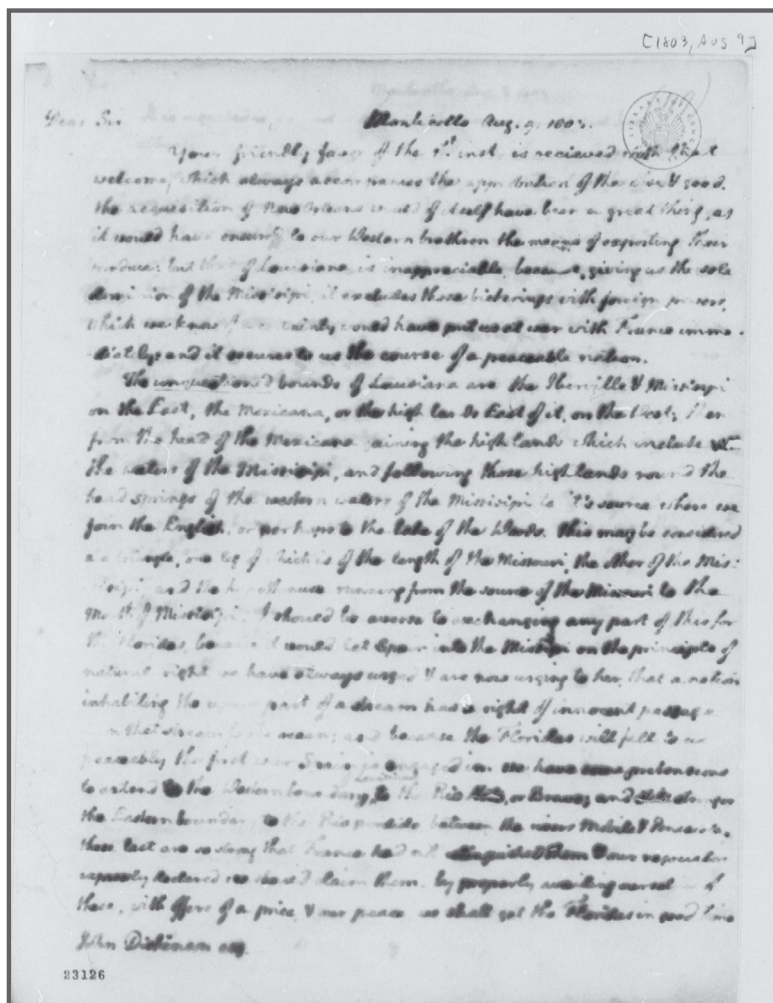 [1803, Aug 9]
Dear Sir Monticello Aug. 9. 1803.
Your friendly favor of the 1st inst. is recieved with that
welcome, which always accompanies the approbation of the wise & good.
the acquisition of New Orleans would of itself have been a great thing, as
it would have ensured to our Western brethren the means of exporting their
produce: but that of Louisiana is inappreciable, because, giving us the sole
dominion of the Missisipi, it excludes those bickerings with foreign powers,
which we know of a certainty would have put us at war with France imme-
diately: and it secures to us the course of a peaceable nation.
The unquestioned bounds of Louisiana are the Iberville & Missisipi
on the East, the Mexicana, or the high lands East of it, on the West; then
from the head of the Mexicana gaining the high lands which include
the waters of the Missisipi, and following those highlands round the
head springs of the western waters of the Missisipi to it's source where we
join the English, or perhaps to the lake of the Woods. this may be considered
as a triangle, one leg of which is of the length of the Missouri, the other of the Mis-
sisipi, and the hypothenuse running from the source of the Missouri to the
mouth of Missisipi. I should be averse to exchanging any part of this for
the Floridas, because it would let Spain into the Missisipi on the principle of
natural right we have always urged & are now urging to her, that a nation
inhabiting the upper part of a stream has a right of innocent passage
down that stream to the ocean; and because the Floridas will fall to us
peaceably the first war Spain is engaged in. we have some pretensions
to extend the Western boundary of Louisiana to the Rio Norte, or Bravo; and still stronger
the Eastern boundary to the Rio perdido between the rivers Mobile & Pensacola.
these last are so strong that France had not relinquished them & our negociator
expressly declared we should claim them. by properly availing ourselves of
these, with offers of a price, & our peace, we shall get the Floridas in good time
John Dickinson esq.
23126